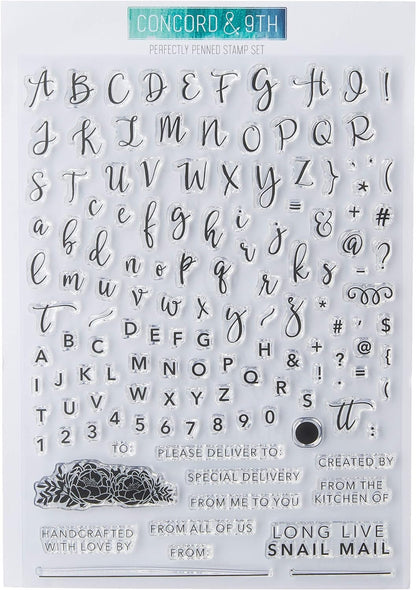 CONCORD & 9TH
PERFECTLY PENNED STAMP SET
A B C D E F G H I !
J K L M N O P Q R
S T U V W X Y Z } * (
a b c d e f g h i j & + #
l m n o p q r k s = @ - ?
t u v w x y z *
A B C D E F G H & + # ' $
I J K L M N O P Q R S ! ? @ (
T U V W X Y Z
1 2 3 4 5 6 7 8 9 0 tt :
TO: PLEASE DELIVER TO:
CREATED BY
SPECIAL DELIVERY
FROM THE
KITCHEN OF
FROM ME TO YOU
HANDCRAFTED
WITH LOVE BY
FROM ALL OF US
FROM:
LONG LIVE
SNAIL MAIL